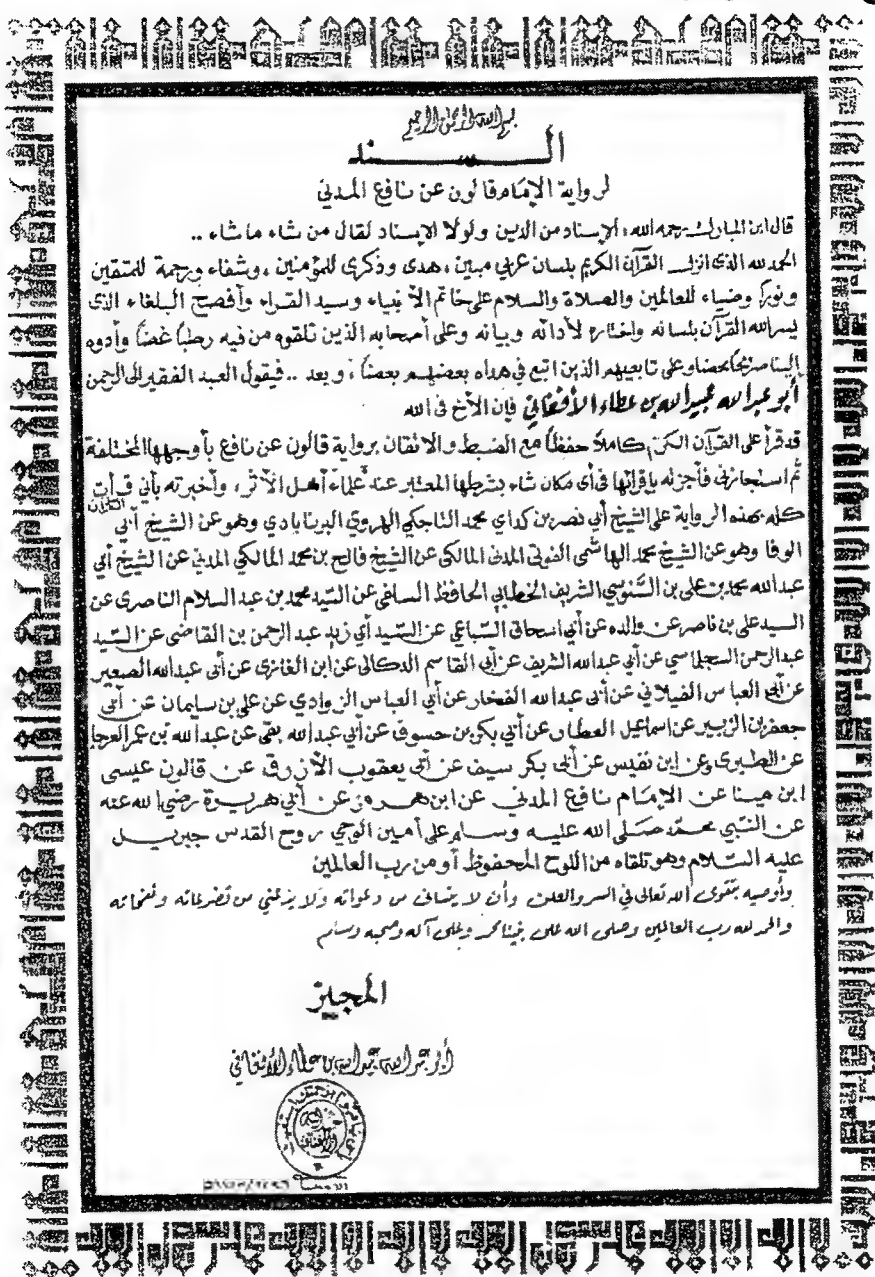 بسم الله الرحمن الرحيم
الســـــند
لرواية الإمام قالون عن نافع المدني
قال ابن المبارك رحمه الله: الإسناد من الدين ولولا الإسناد لقال من شاء ما شاء ..
الحمد لله الذي انزل القرآن الكريم بلسان عربي مبين، هدى وذكرى للمؤمنين، وشفاء ورحمة للمتقين
ونورًا وضياء للعالمين والصلاة والسلام على خاتم الأنبياء وسيد القراء وأفصح البلغاء الذي
يسر الله القرآن بلسانه واختاره لأدائه وبيانه وعلى أصحابه الذين تلقوه من فيه رطبًا غضًا وأدوه
إلينا صريحًا محضًا وعلى تابعيهم الذين اتبع في هداه بعضهم بعضًا، وبعد .. فيقول العبد الفقير إلى الرحمن
أبو عبد الله عبيد الله بن عطاء الأفغاني فإن الأخ في الله
قد قرأ علي القرآن الكريم كاملاً حفظًا مع الضبط والاتقان برواية قالون عن نافع بأوجهها المختلفة
ثم استجازني فأجزته بإقرائها في أي مكان شاء بشرطها المعتبر عند علماء أهل الأثر، وأخبرته بأني قرأت القرآن
كله بهذه الرواية على الشيخ أبي نصر بن كداي محمد التاجكي الهروي البرنابادي وهو عن الشيخ أبي
الوفا وهو عن الشيخ محمد الهاشمي الفوتي المدني المالكي عن الشيخ فالح بن محمد المالكي المدني عن الشيخ أبي
عبدالله محمد بن علي بن السنوسي الشريف الخطابي الحافظ السلفي عن السيد محمد بن عبد السلام الناصري عن
السيد علي بن ناصر عن والده عن أبي اسحاق السباعي عن السيد أبي زيد عبد الرحمن بن القاضي عن السيد
عبدالرحمن السجلماسي عن أبي عبدالله الشريف عن أبي القاسم الدكالي عن ابن الغازي عن أبي عبدالله الصغير
عن أبي العباس الفيلالي عن أبي عبدالله الفخار عن أبي العباس الزوادي عن علي بن سليمان عن أبي
جعفر بن الزبير عن اسماعيل العطار عن أبي بكر بن حسوف عن أبي عبدالله بقي عن عبدالله بن عمر العرجا
عن الطبري وعن ابن نفيس عن أبي بكر سيف عن أبي يعقوب الأزرق عن قالون عيسى
ابن مينا عن الإمام نافع المدني عن ابن هرمز عن أبي هريرة رضي الله عنه
عن النبي محمد صلى الله عليه وسلم على أمين الوحي روح القدس جبريل
عليه السلام وهو تلقاه من اللوح المحفوظ أو من رب العالمين
وأوصيه بتقوى الله تعالى في السر والعلن وأن لا ينساني من دعواته
والحمد لله رب العالمين وصلى الله على نبينا محمد وعلى آله وصحبه وسلم
المجيز
أبو عبد الله عبيد الله بن عطاء الأفغاني